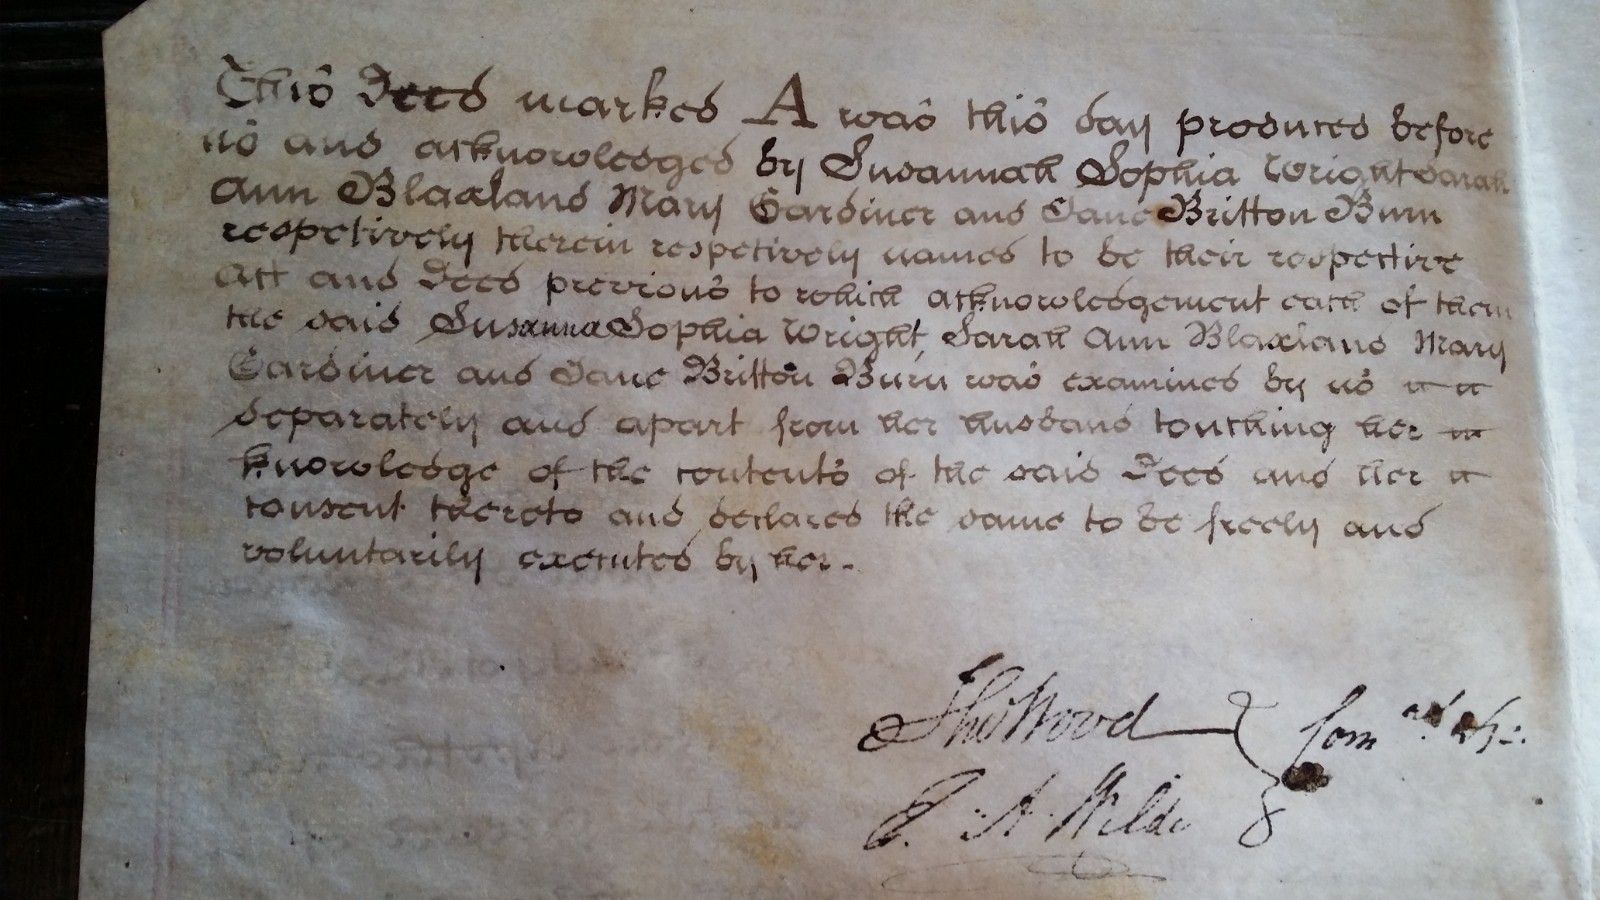 This Deed marked A was this day produced before
us and acknowledged by Susannah Sophia Wright Sarah
Ann Blaxland Mary Gardiner and Jane Britton Burn
respectively therein respectively named to be their respective
Act and Deed previous to which acknowledgement each of them
the said Susanna Sophia Wright, Sarah Ann Blaxland Mary
Gardiner and Jane Britton Burn was examined by us
separately and apart from her husband touching her
knowledge of the contents of the said Deed and her
consent thereto and declared the same to be freely and
voluntarily executed by her.
Thos Wood
A. Wilde